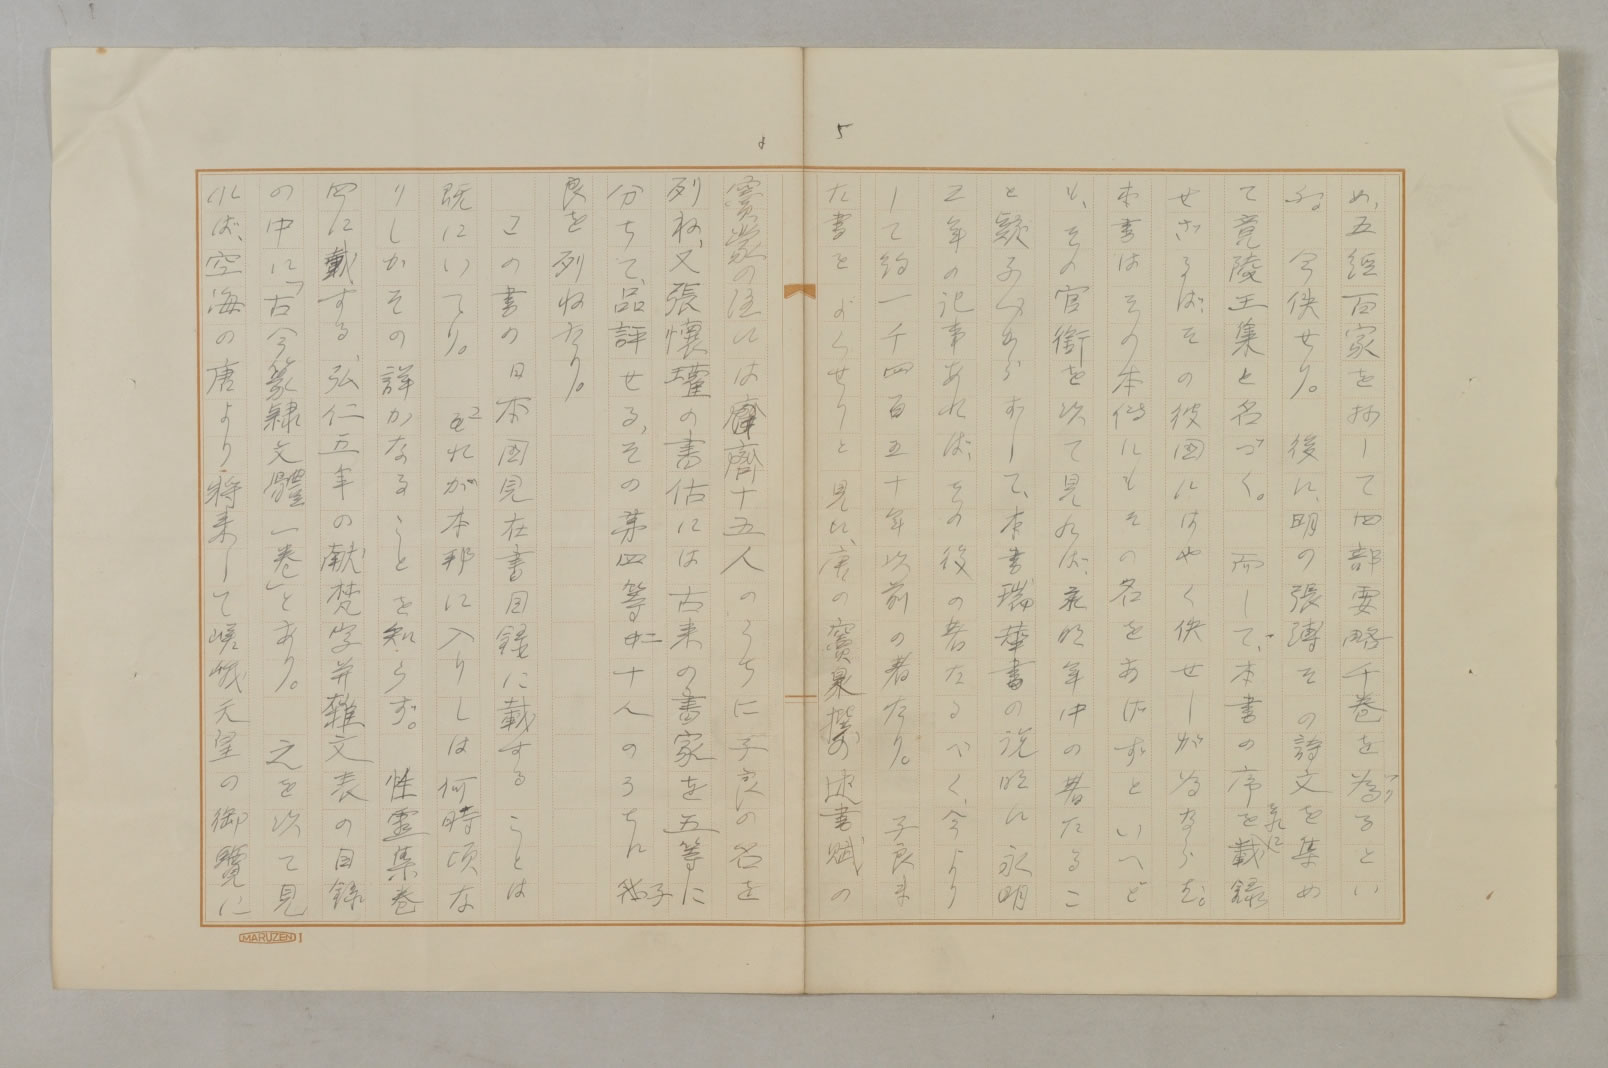 5
め、五経百家を抄して四部要略千巻を為るとい
ふ。今佚せり。後に、明の張溥その詩文を集め
て竟陵王集と名づく。而して、本書の序を載録
せざるは、その彼国にはやく佚せしが為ならむ。
本書はその本傳にもその名をあげずといへど
も、その官銜を以て見れば、永明年中の著たるこ
と疑ふべからずして、本書瑞華書の説明に永明
三年の記事あれば、その後の著たるべく、今より
して約一千四百五十年以前の著たり。子良ま
た書をよくせりと見え、唐の竇臮撰の述書賦の
竇蒙の注には南齊十五人のうちに子良の名を
列ね、又、張懐瓘の書估には古来の書家を五等に
分ちて、品評せる、その第四等廿二十人のうちに子
良を列ねたり。
この書の日本国見在書目録に載することは
既にいへり。これが本邦に入りしは何時頃な
りしかその詳かなることを知らず。性霊集巻
四に載する、弘仁五年の献梵字并雑文表の目録
の中に「古今篆隷文體一巻」とあり。之を以て見
れば、空海の唐より将来して嵯峨天皇の御覧に
MARUZEN 1